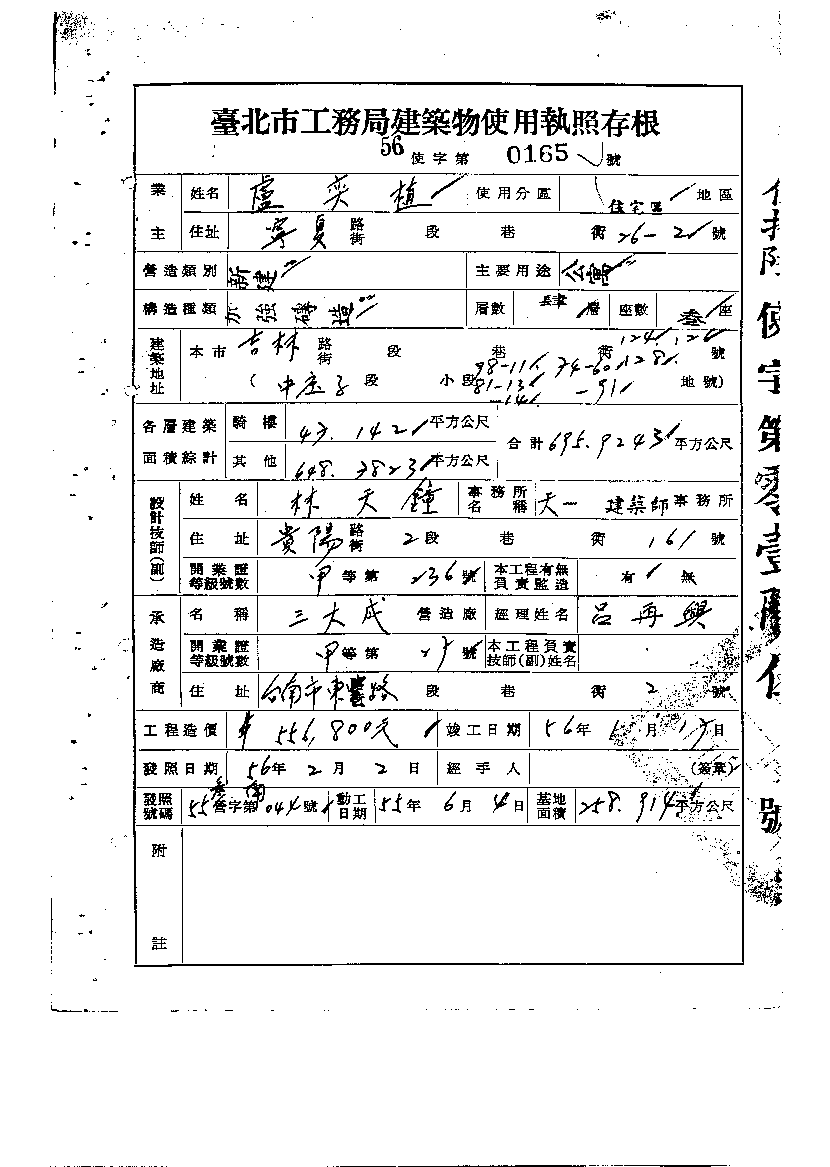 臺北市工務局建築物使用執照存根
56 使字第 0165 號
業主 姓名 盧奕植 使用分區 住宅區 地區
住址 寧夏 路街 段 巷 街 26-2 號
營造類別 新建 主要用途 公寓
構造種類 加強磚造 層數 層 座數 叁 座
建築地址 本市 吉林 路街 段 巷 街 124, 126 128 號
( 中庄子 段 小段 98-11 74-60 81-136 -91 地號)
各層建築面積綜計 騎樓 47.142 平方公尺 合計 695.9243 平方公尺
其他 648.7823 平方公尺
設計技師(副) 姓名 林天鐘 事務所名稱 天一 建築師 事務所
住址 貴陽 路街 2 段 巷 街 161 號
開業證等級號數 甲 等第 236 號 本工程有無負責監造 有 無
承造廠商 名稱 三大成 營造廠 經理姓名 呂再興
開業證等級號數 甲 等第 號 本工程負責技師(副)姓名
住址 台南市東豐路 段 巷 街 2 號
工程造價 556,800元 竣工日期 56年 月 日
發照日期 56年 2月 2日 經手人 (簽章)
發照號碼 55 營字第 044 號 動工日期 55年 6月 4日 基地面積 258.914 平方公尺
附註
使字第零壹陸伍號